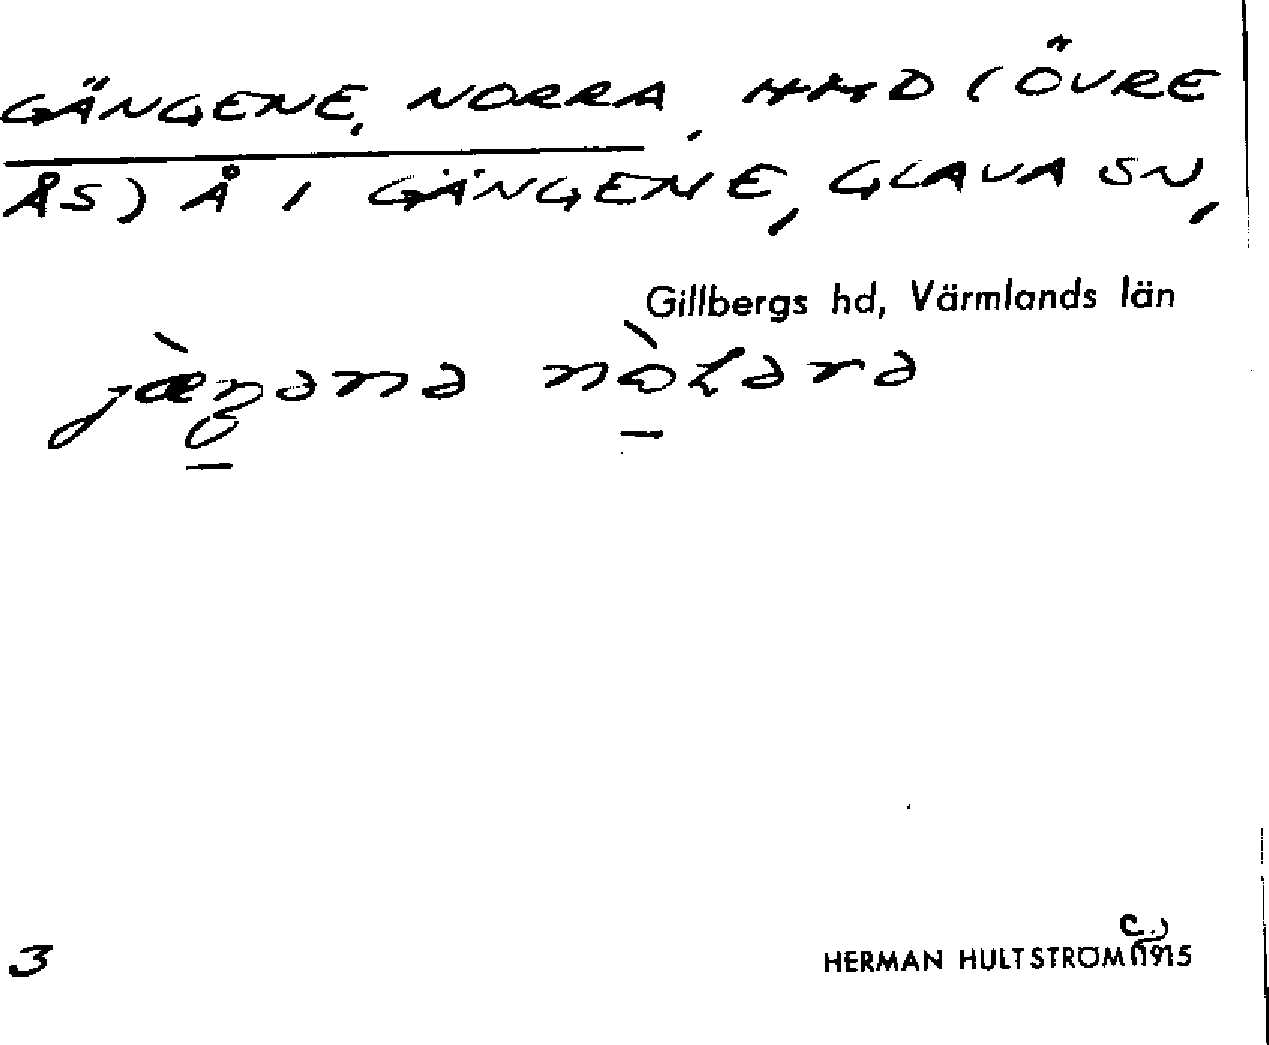 GÄNGENE, NORRA, HMD (ÖVRE
ÅS) Å I GÄNGENE, GLAVA SN,
Gillbergs hd, Värmlands län
jæ̀ŋənə nòɫərə
3
HERMAN HULTSTRÖM (c.) 1915